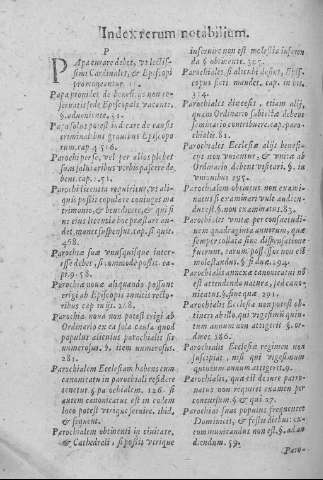 Index rerum notabilium.
P
PApa curare debet, ut lectis-
simi Cardinales, & Episcopi
promoveantur
Papa providet de beneficiis non re-
servatis sede Episcopali vacante,
§. advenitate. 31.
Papa solus potest judicare de causis
criminalibus gravibus Episcopo
rum. cap. 4 516.
Parochi per se, vel per alios plebes
suas salutaribus verbis pascere de-
bent. cap. 51.
Parochi licentia requiritur, ut ali-
quis possit copulare conjuges ma
trimonio, & benedicere, & qui si
ne ejus licentia hoc praestare au-
det, manet suspensus. cap. si quis.
458.
Parochia sua unusquisque inter-
esse debet, si commode potest. ca-
pr. 9. 58.
Parochia nova aliquando possunt
erigi ab Episcopis invitis recto-
ribus cap. in iis. 268.
Parochia nova non potest erigi ab
Ordinario ex ea sola causa quod
populus alienius parochialis sit
numerosus. §. item numerosus.
281.
Parochialem Ecclesiam habens cum
canonicatu in parochiali residere
tenetur. § pa ochialem. 126. si
autem canonicatus est in eodem
loco potest utrique servire. ibid.
& sequent.
Parochialem obtinenti in civitate,
& Cathedrali, si possit utrique
inservire non est molestia inferen
da § obtinente. 305.
Parochiales si alendi desint, Epis-
copus fieri mandet. cap. in his.
374.
Parochiales diaecesis, etiam alij,
quam Ordinario subjectae debent
seminario contribuere. cap. paro-
chiales. 81.
Parochiales Ecclesiae aliis benefi-
ciis non uniantur, & unita ab
Ordinario debent visitari. §. in
unionibus 195.
Parochialem obtinens non exami-
natus si examinari vult audien-
dus est. §. non examinatus. 83.
Parochiales unitae per consuetudi-
nem quadraginta annorum, quae
semper collata sine dispensatione
fuerunt, earum possessores non est
molestandus. § si duae. 294.
Parochialis annexa canonicatui no
est attendenda natura, sed cano-
nicatus. § sine qua 291.
Parochialis Ecclesia non potest ob-
tineri ab illo, qui vigesimum quin-
tum annum non attigerit §. or-
dines 286.
Parochialis Ecclesia regimen non
suscipiat, nisi qui vigesimum
quintum annum attigerit. 9.
Parochialis, quae est dicure patro-
natus non requirit examen per
concursum. § & qui 27.
Parochias suas populus frequentet
Dominicis, & festis diebus: ex-
communicandus non est. §. ad au-
dendum. 59.
Paro-